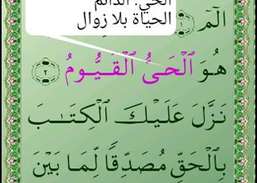 الحي: الدائم
الحياة بلا زوال
الٓمٓ ١
هُوَ ٱلْحَىُّ ٱلْقَيُّومُ ٢
نَزَّلَ عَلَيْكَ ٱلْكِتَـٰبَ
بِٱلْحَقِّ مُصَدِّقًا لِّمَا بَيْنَ